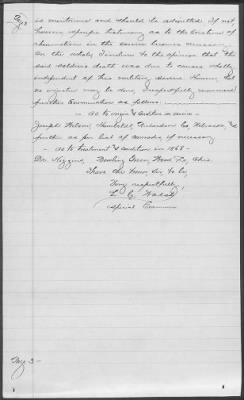 is meritorious and should be admitted. If not
however, specific testimony as to the treatment of
rheumatism in the service becomes necessary.
On the whole I incline to the opinion that the
said soldiers death was due to causes wholly
independent of his military service. However, that
no injustice may be done, I respectfully recommend
further Examination as follows:
- As to origin & condition in service -
Joseph Wilson, Humboldt, Richardson Co, Nebraska, &
further as per list of comrades if necessary
- As to treatment & condition in 1865 -
Dr. Higgins, Bowling Green, Wood Co, Ohio.
I have the honor Sir to be,
Very respectfully,
Special Examiner
Page 3 -